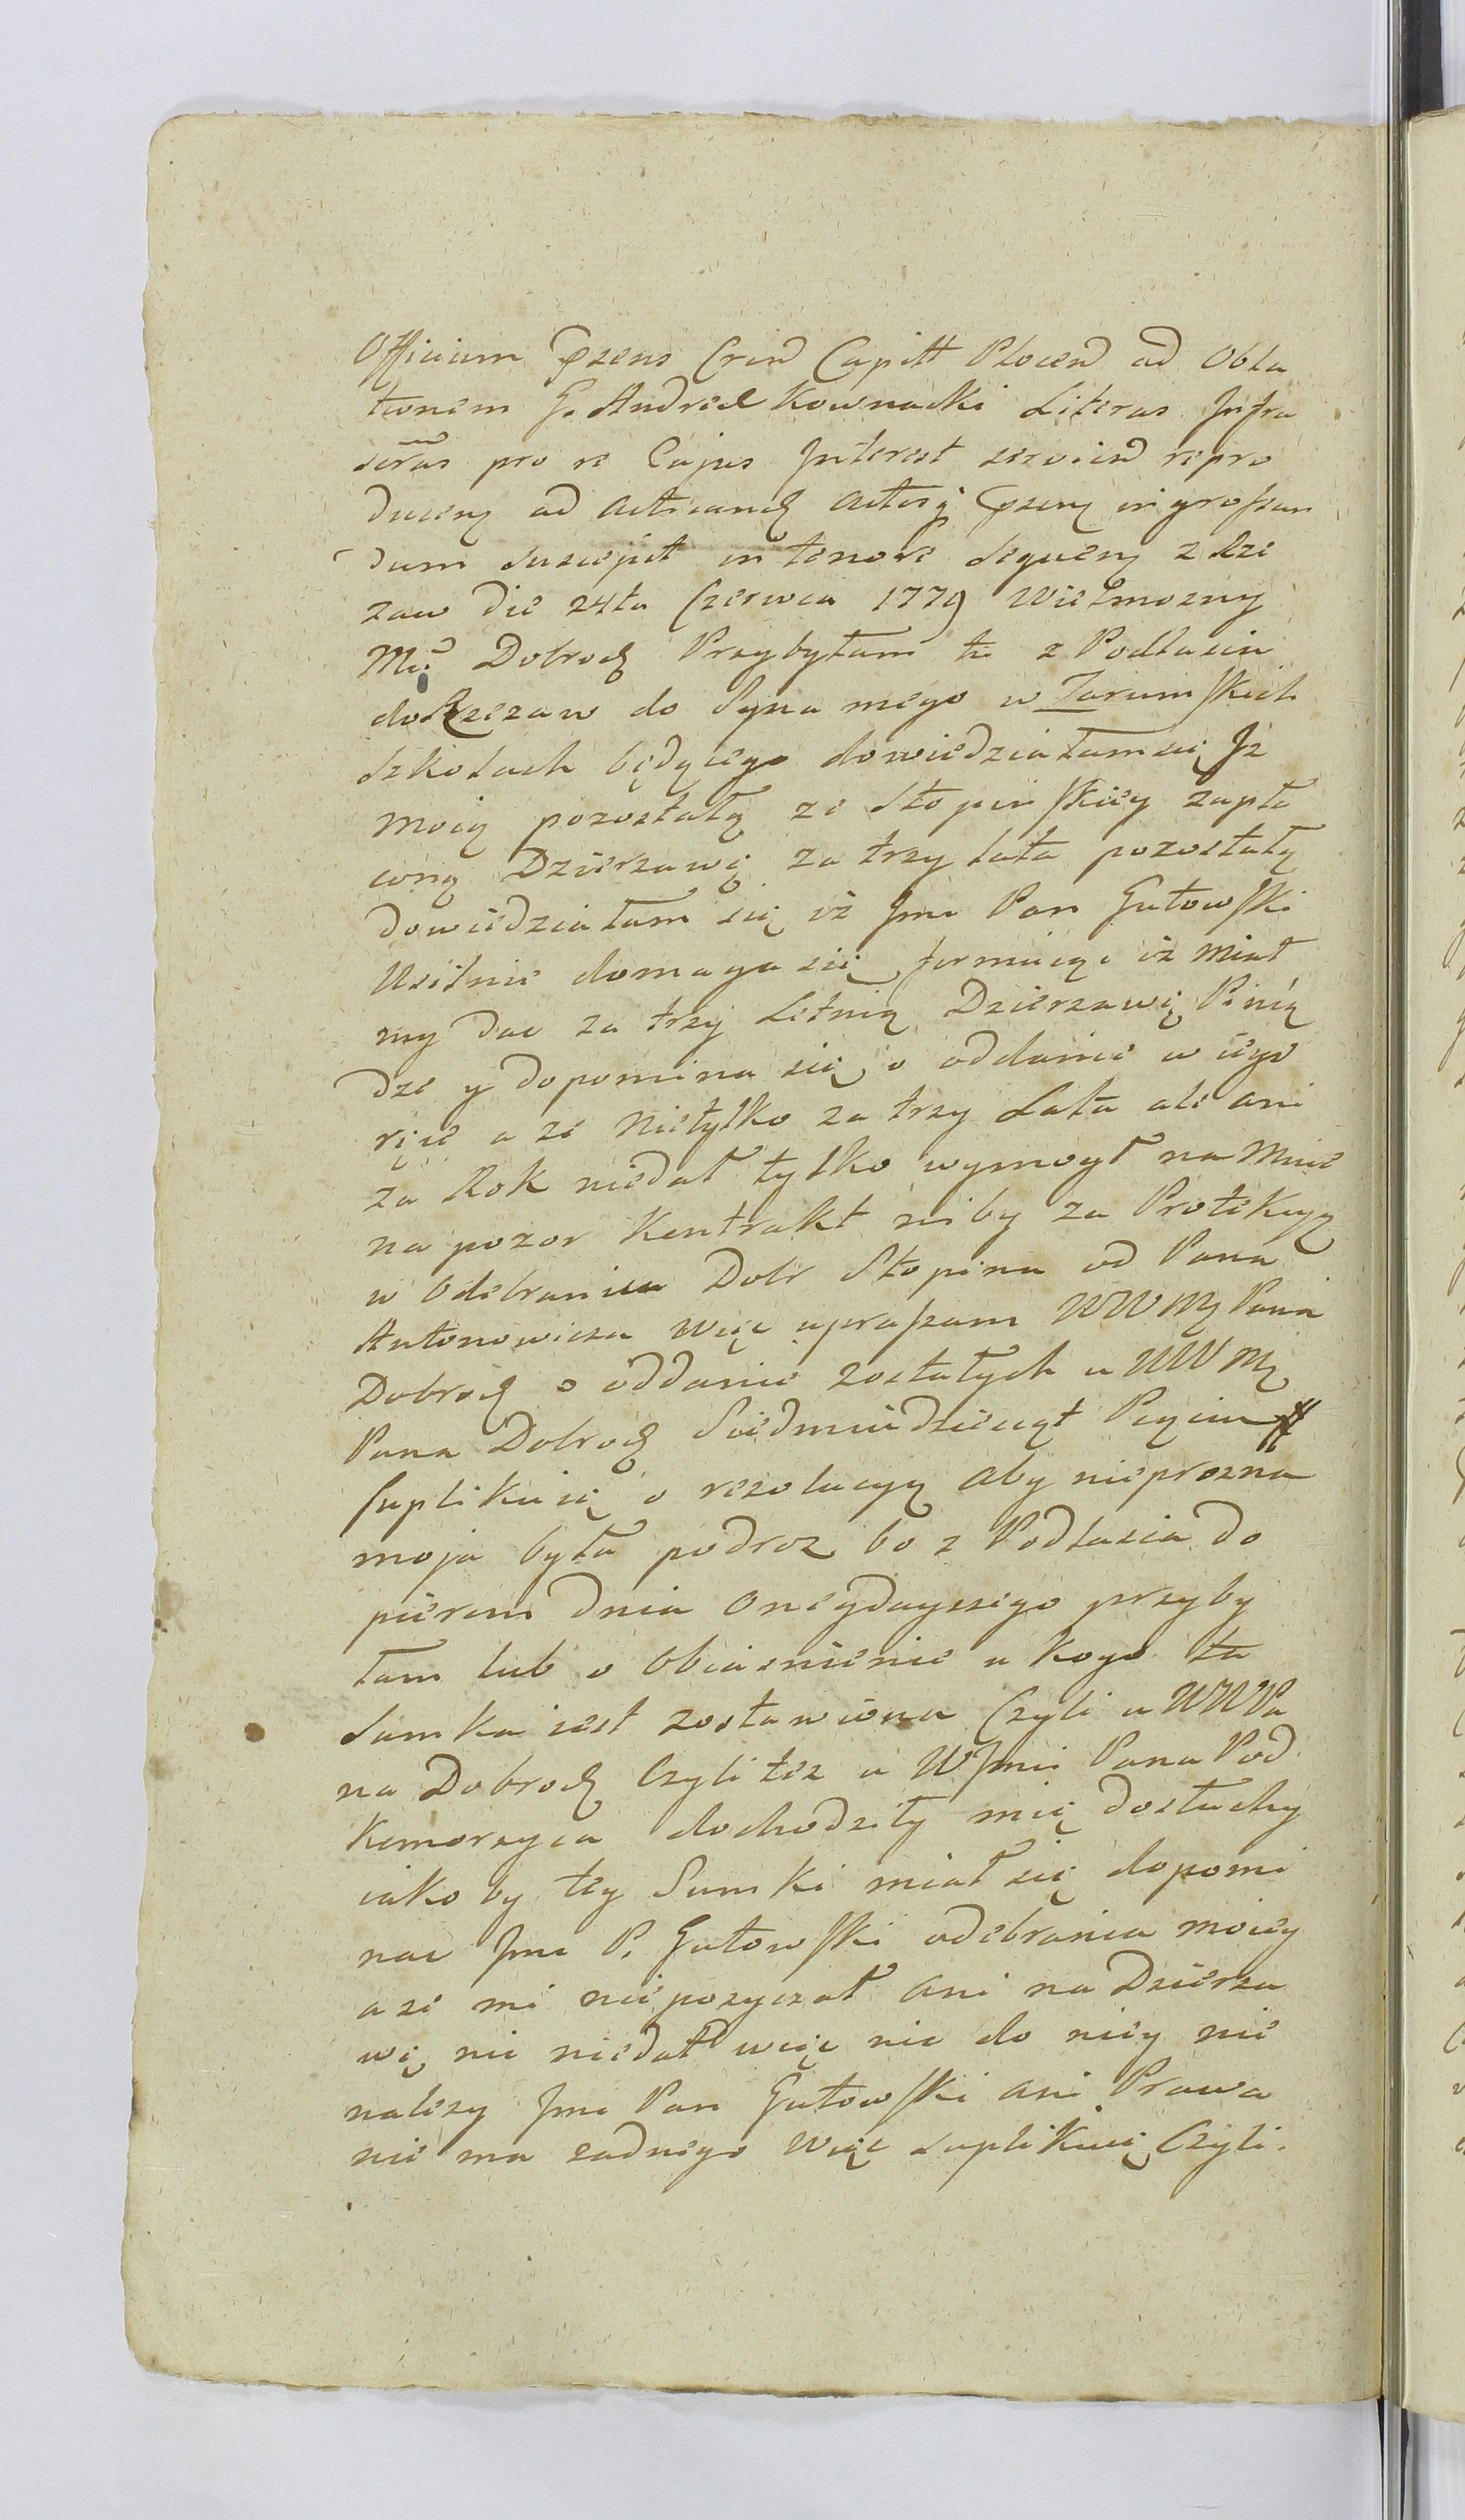 Officium Przens Crend Capitt Plocend ad Obla
tionem G. Andreæ Kownacki Literas Infra
scras pro re Cujus Interest servien repro
ducen ad acticand actisq Przen ingrossan
dum suscepit in tenore sequen z Rze
zaw die 24ta Czerwca 1779 Wielmozny
Mci Dobrodz Przybyłam tu z Podlasia
do Rzezaw do Syna mego w Zaremskich
Szkolach będącego dowiedziałam się Jz
moią pozostałą ze Słopinskiey zapła
coną Dzierzawę za trzy lata pozostałą
dowiedziałam się iż Jmc Pan Gutowski
Usilnie domaga się formuiąc iż miał
my dac za trzy Letnią Dzierzawę Pinią
dze y dopomina się o oddanie w iego
ręce a ze nietylko za trzy Lata ale ani
za Rok niedał tylko wymogł na Mnie
na pozor Kontrakt niby za Protekcyą
w Odebraniu Dobr Słopina od Pana
Antonowicza więc upraszam WWM Pana
Dobrodz o oddanie zostałych u WWM
Pana Dobrodz Siedmiudziesiąt Pięciu #
suplikuię o rezolucyą aby nieprozna
moja była podroz bo z Podlasia do
pierem dnia Onegdayszego przyby
łam lub o Obiasnienie u kogo ta
Sumka iest zostawiona Czyli u WWPa
na Dobrodz Czyli tez u WJmci Pana Pod
Komorzyca dochodziły mię dosłuchy
iako by tey Sumki miał się dopomi
nac Jmc P. Gutowski odebrania moiey
a ze mi niepozyczał ani na Dzierza
wę nic niedał więc nic do niey nie
nalezy Jmc Pan Gutowski ani Prawa
nie ma zadnego Więc suplikuię Czyli.